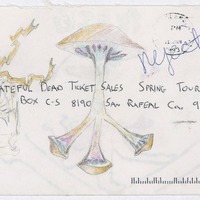 Reject
ATEFUL DEAD TICKET SALES SPRING TOUR
BOX C-S 8190 SAN RAFEAL CA, 9